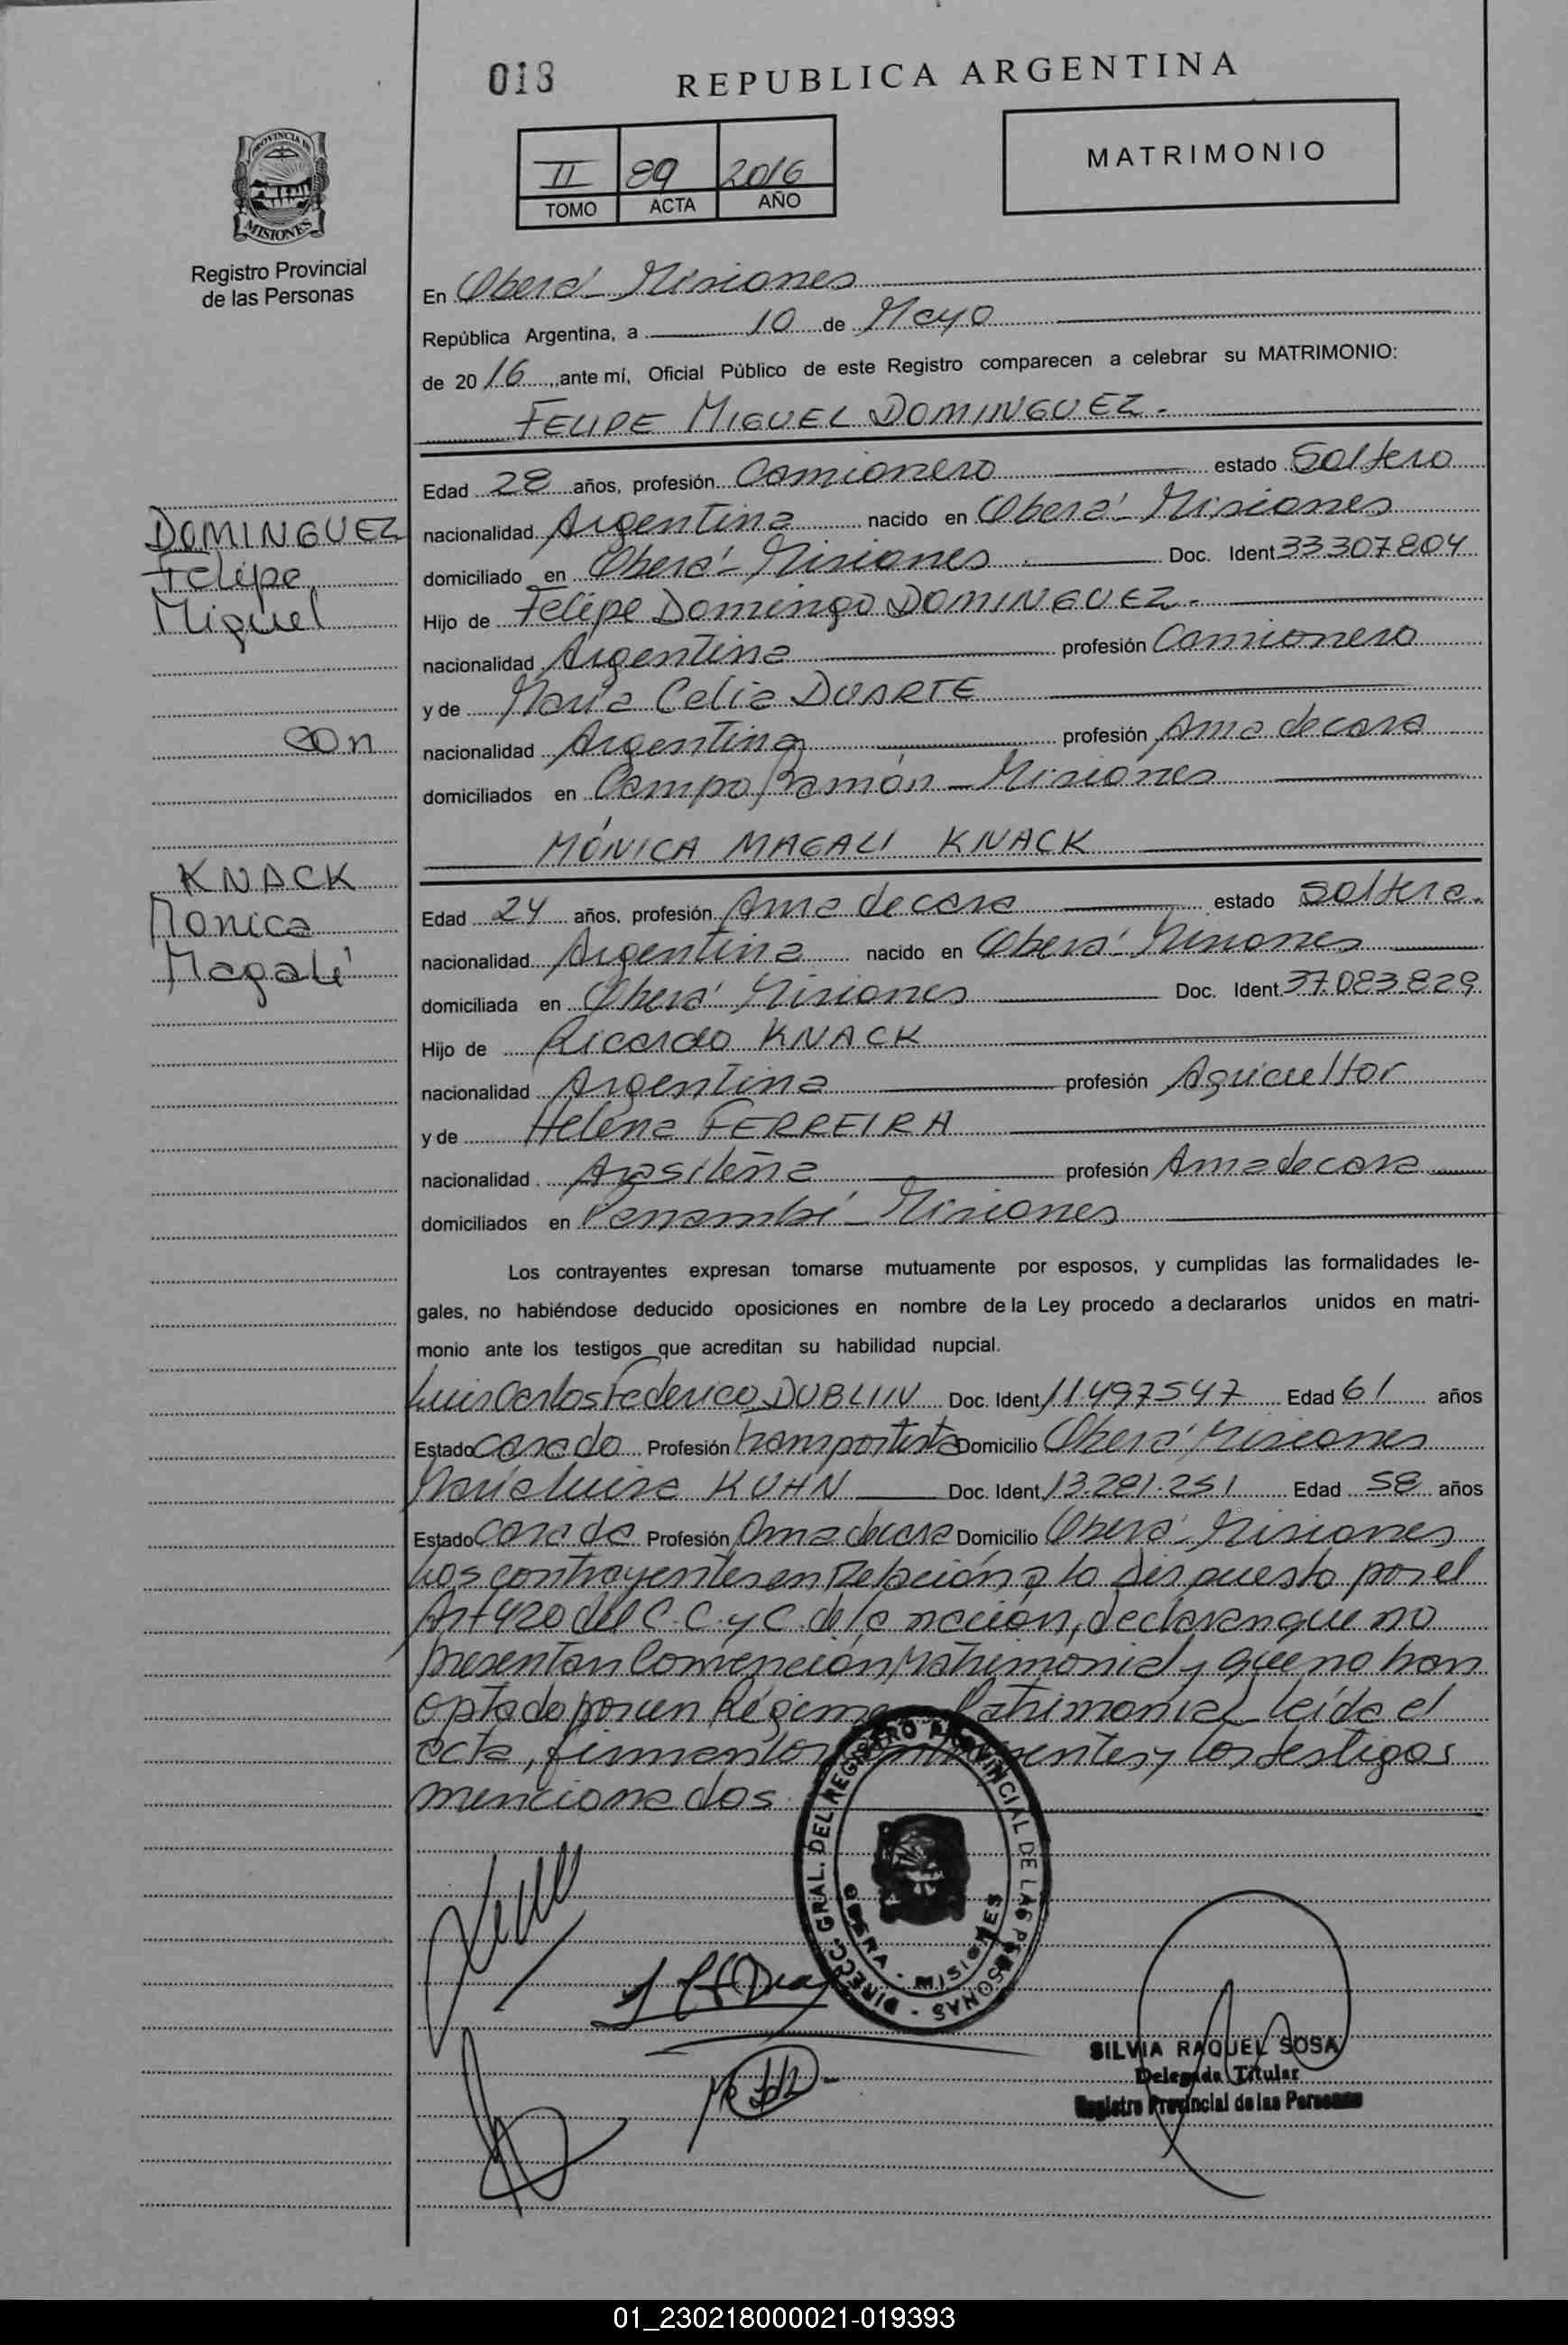 013
REPUBLICA ARGENTINA
PROVINCIA DE
MISIONES
Registro Provincial
de las Personas
II 89 2016
TOMO ACTA AÑO
MATRIMONIO
En Oberá - Misiones
República Argentina, a 10 de Mayo
de 2016, ante mí, Oficial Público de este Registro comparecen a celebrar su MATRIMONIO:
FELIPE MIGUEL DOMINGUEZ.-
Edad 28 años, profesión Camionero estado Soltero
DOMINGUEZ
Felipe
Miguel
nacionalidad Argentina nacido en Oberá - Misiones
domiciliado en Oberá - Misiones Doc. Ident 33307804
Hijo de Felipe Domingo DOMINGUEZ.-
nacionalidad Argentina profesión Camionero
y de María Celia DUARTE
con
nacionalidad Argentina profesión Ama de casa
domiciliados en Campo Ramón - Misiones
MÓNICA MAGALI KNACK
KNACK
Monica
Magalí
Edad 24 años, profesión Ama de casa estado Soltera.
nacionalidad Argentina nacido en Oberá - Misiones
domiciliada en Oberá - Misiones Doc. Ident 37.083.829
Hijo de Ricardo KNACK
nacionalidad Argentina profesión Agricultor
y de Helena FERREIRA
nacionalidad Brasileña profesión Ama de casa
domiciliados en Panambí - Misiones
Los contrayentes expresan tomarse mutuamente por esposos, y cumplidas las formalidades le-
gales, no habiéndose deducido oposiciones en nombre de la Ley procedo a declararlos unidos en matri-
monio ante los testigos que acreditan su habilidad nupcial.
Luis Carlos Federico DUBLIN Doc. Ident 11.497547 Edad 61 años
Estado casado Profesión transportista Domicilio Oberá, Misiones
María Luisa KUHN Doc. Ident 13.281.251 Edad 58 años
Estado casada Profesión Ama de casa Domicilio Oberá - Misiones
Los contrayentes en Relación a lo dispuesto por el
Art 420 del C.C. y C. de la nación, declaran que no
presentan Convención Matrimonial y que no han
optado por un Régimen Patrimonial leída el
acta, firman los contrayentes y los testigos
mencionados
DIRECC. GRAL. DEL REGISTRO PROVINCIAL DE LAS PERSONAS -
OBERA - MISIONES
SILVIA RAQUEL SOSA
Delegada Titular
Registro Provincial de las Personas
01_230218000021-019393